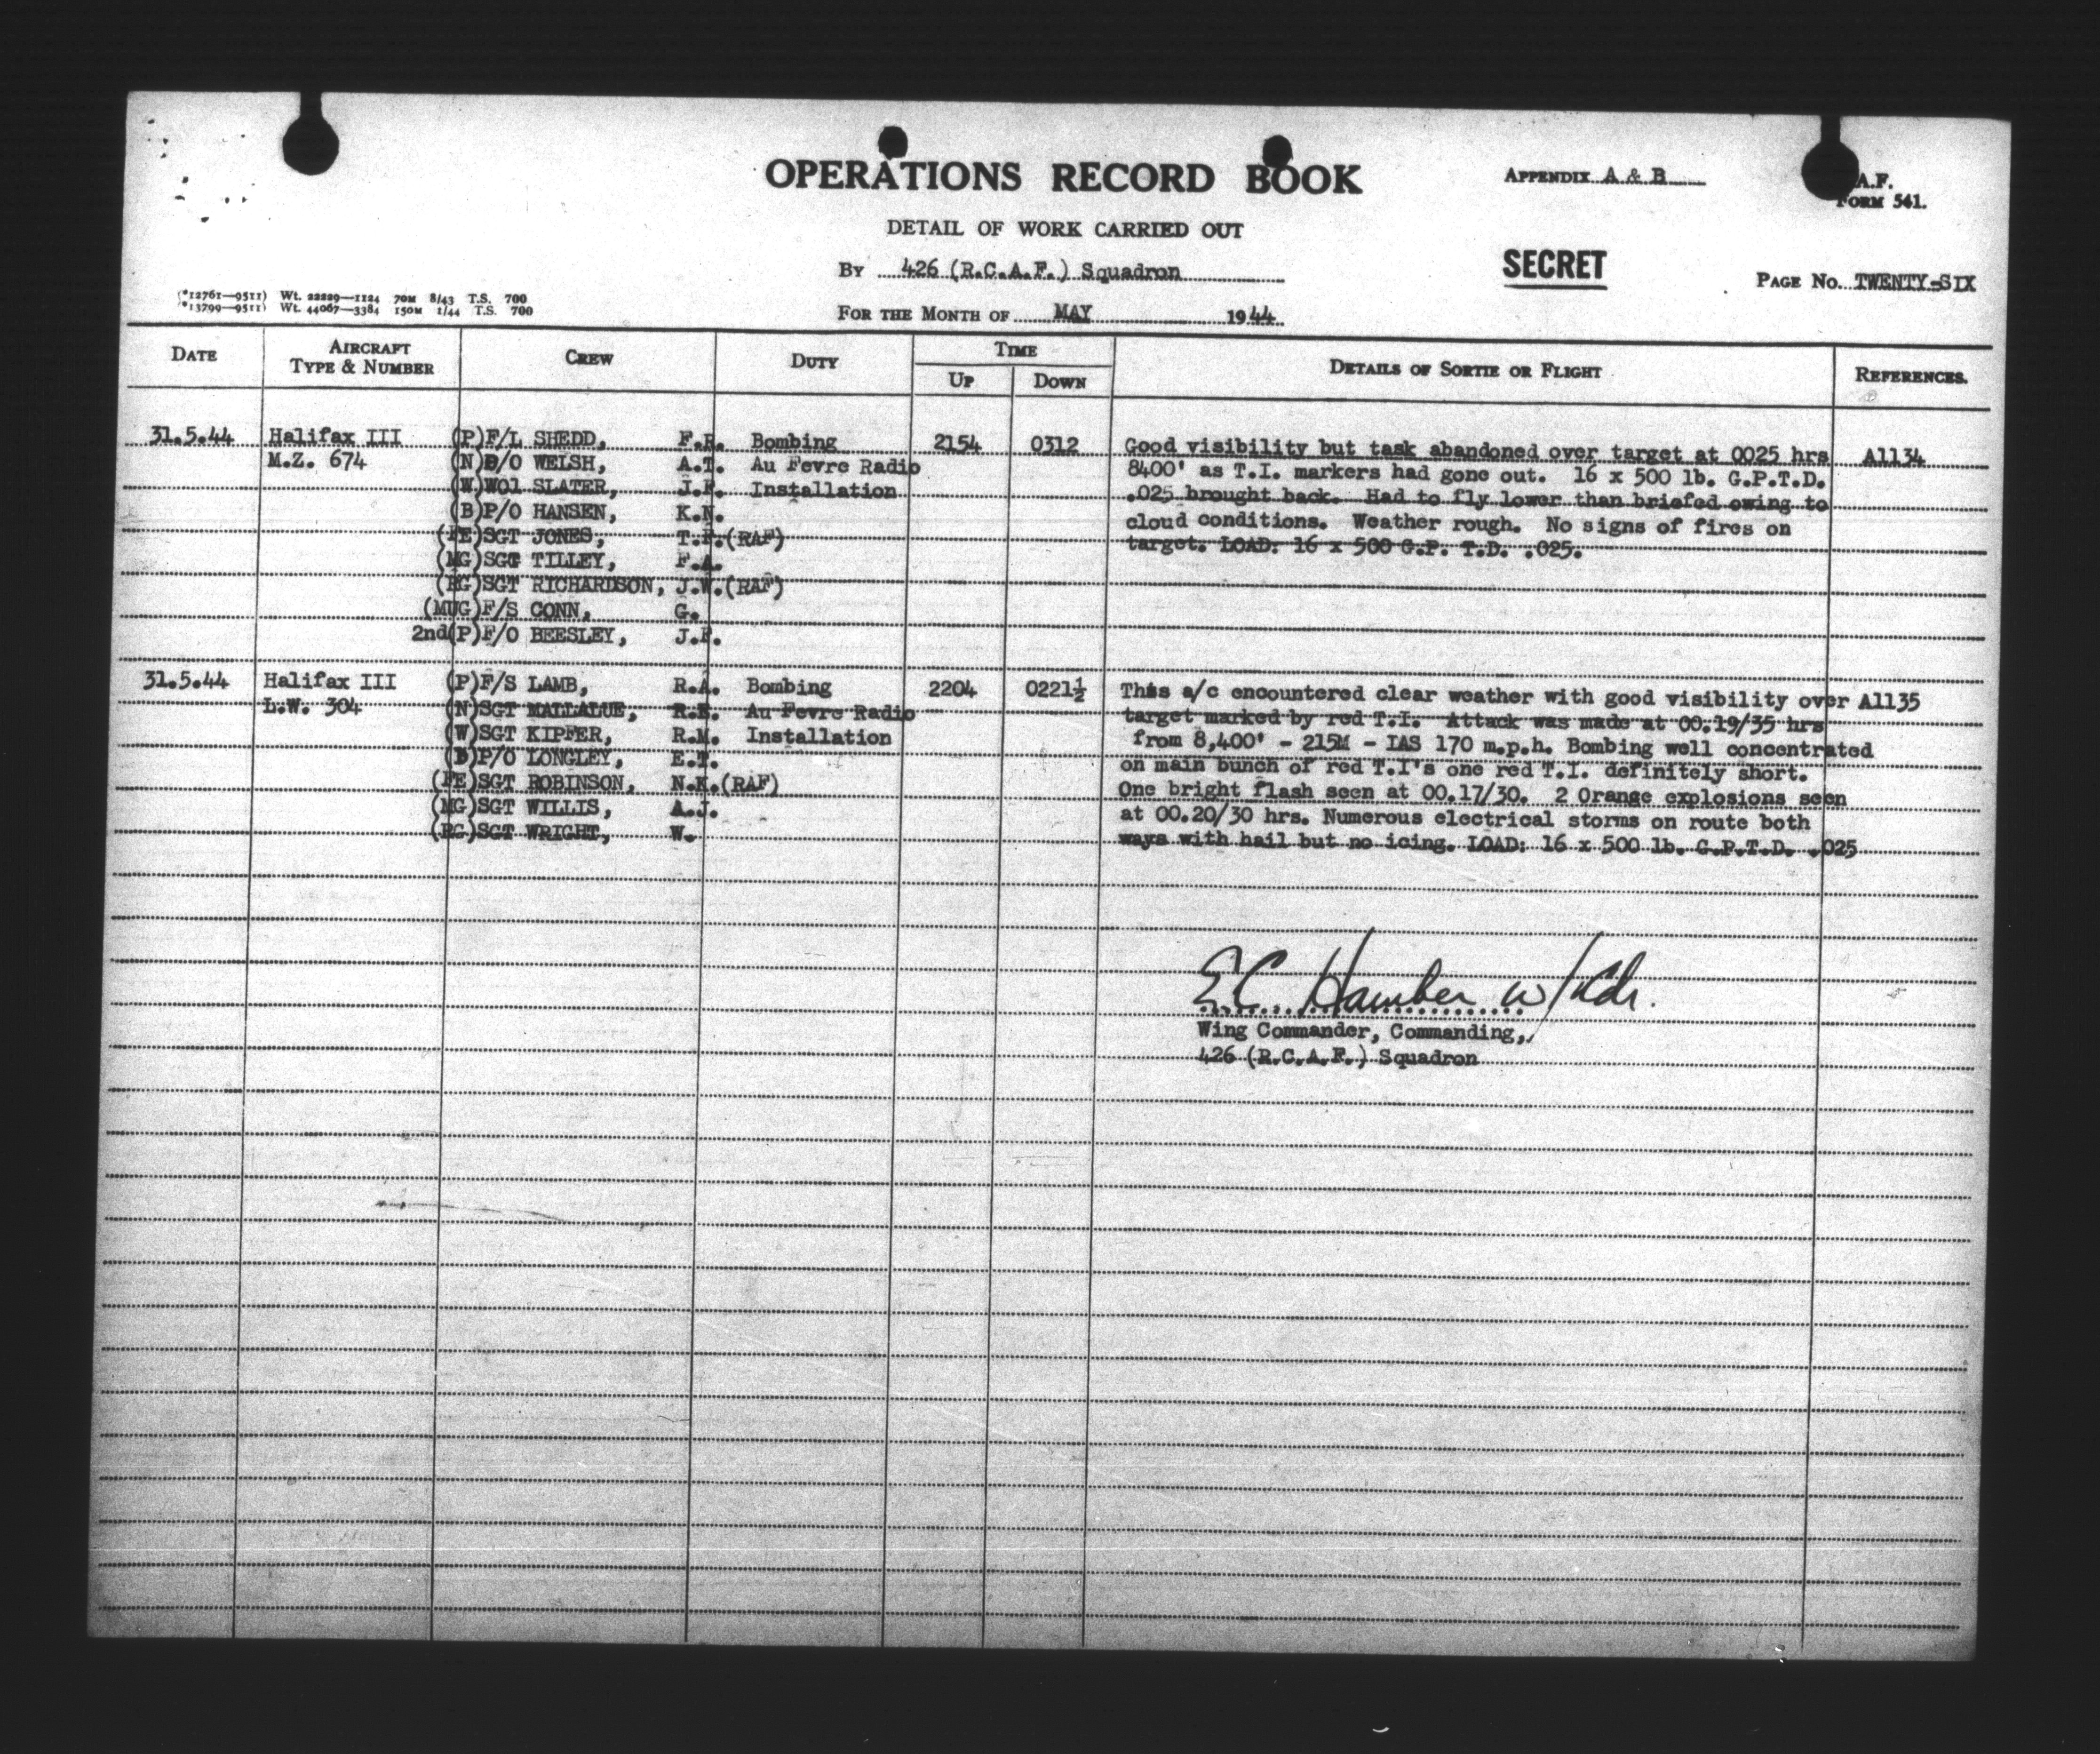 OPERATIONS RECORD BOOK
APPENDIX A & B
A.F.
FORM 541.
DETAIL OF WORK CARRIED OUT
SECRET
By 426 (R.C.A.F.) Squadron
PAGE No. TWENTY-SIX
(*12761—9511) Wt. 22229—1124 70M 8/43 T.S. 700
*13799—9511) Wt. 44067—3384 150M 1/44 T.S. 700
FOR THE MONTH OF MAY 1944
DATE AIRCRAFT TYPE & NUMBER CREW DUTY TIME UP DOWN DETAILS OF SORTIE OR FLIGHT REFERENCES.
31.5.44 Halifax III (P)F/L SHEDD, F.R. Bombing 2154 0312 Good visibility but task abandoned over target at 0025 hrs A1134
M.Z. 674 (N)P/O WELSH, A.T. Au Fevre Radio 8400' as T.I. markers had gone out. 16 x 500 lb. G.P.T.D.
(W)WO1 SLATER, J.F. Installation .025 brought back. Had to fly lower than briefed owing to
(B)P/O HANSEN, K.N. cloud conditions. Weather rough. No signs of fires on
(FE)SGT JONES, T.F.(RAF) target. LOAD. 16 x 500 G.P. T.D. .025.
(MG)SGT TILLEY, F.A.
(RG)SGT RICHARDSON, J.W.(RAF)
(MUG)F/S CONN, G.
2nd(P)F/O BEESLEY, J.F.
31.5.44 Halifax III (P)F/S LAMB, R.A. Bombing 2204 0221½ This a/c encountered clear weather with good visibility over A1135
L.W. 304 (N)SGT MALLALUE, R.E. Au Fevre Radio target marked by red T.I. Attack was made at 00.19/35 hrs
(W)SGT KIPFER, R.M. Installation from 8,400' - 215M - IAS 170 m.p.h. Bombing well concentrated
(B)P/O LONGLEY, E.T. on main bunch of red T.I's one red T.I. definitely short.
(FE)SGT ROBINSON, N.K.(RAF) One bright flash seen at 00.17/30. 2 Orange explosions seen
(MG)SGT WILLIS, A.J. at 00.20/30 hrs. Numerous electrical storms on route both
(RG)SGT WRIGHT, W. ways with hail but no icing. LOAD: 16 x 500 lb. G.P.T.D. .025
E.C. Hamber w/Cdr.
Wing Commander, Commanding,
426 (R.C.A.F.) Squadron